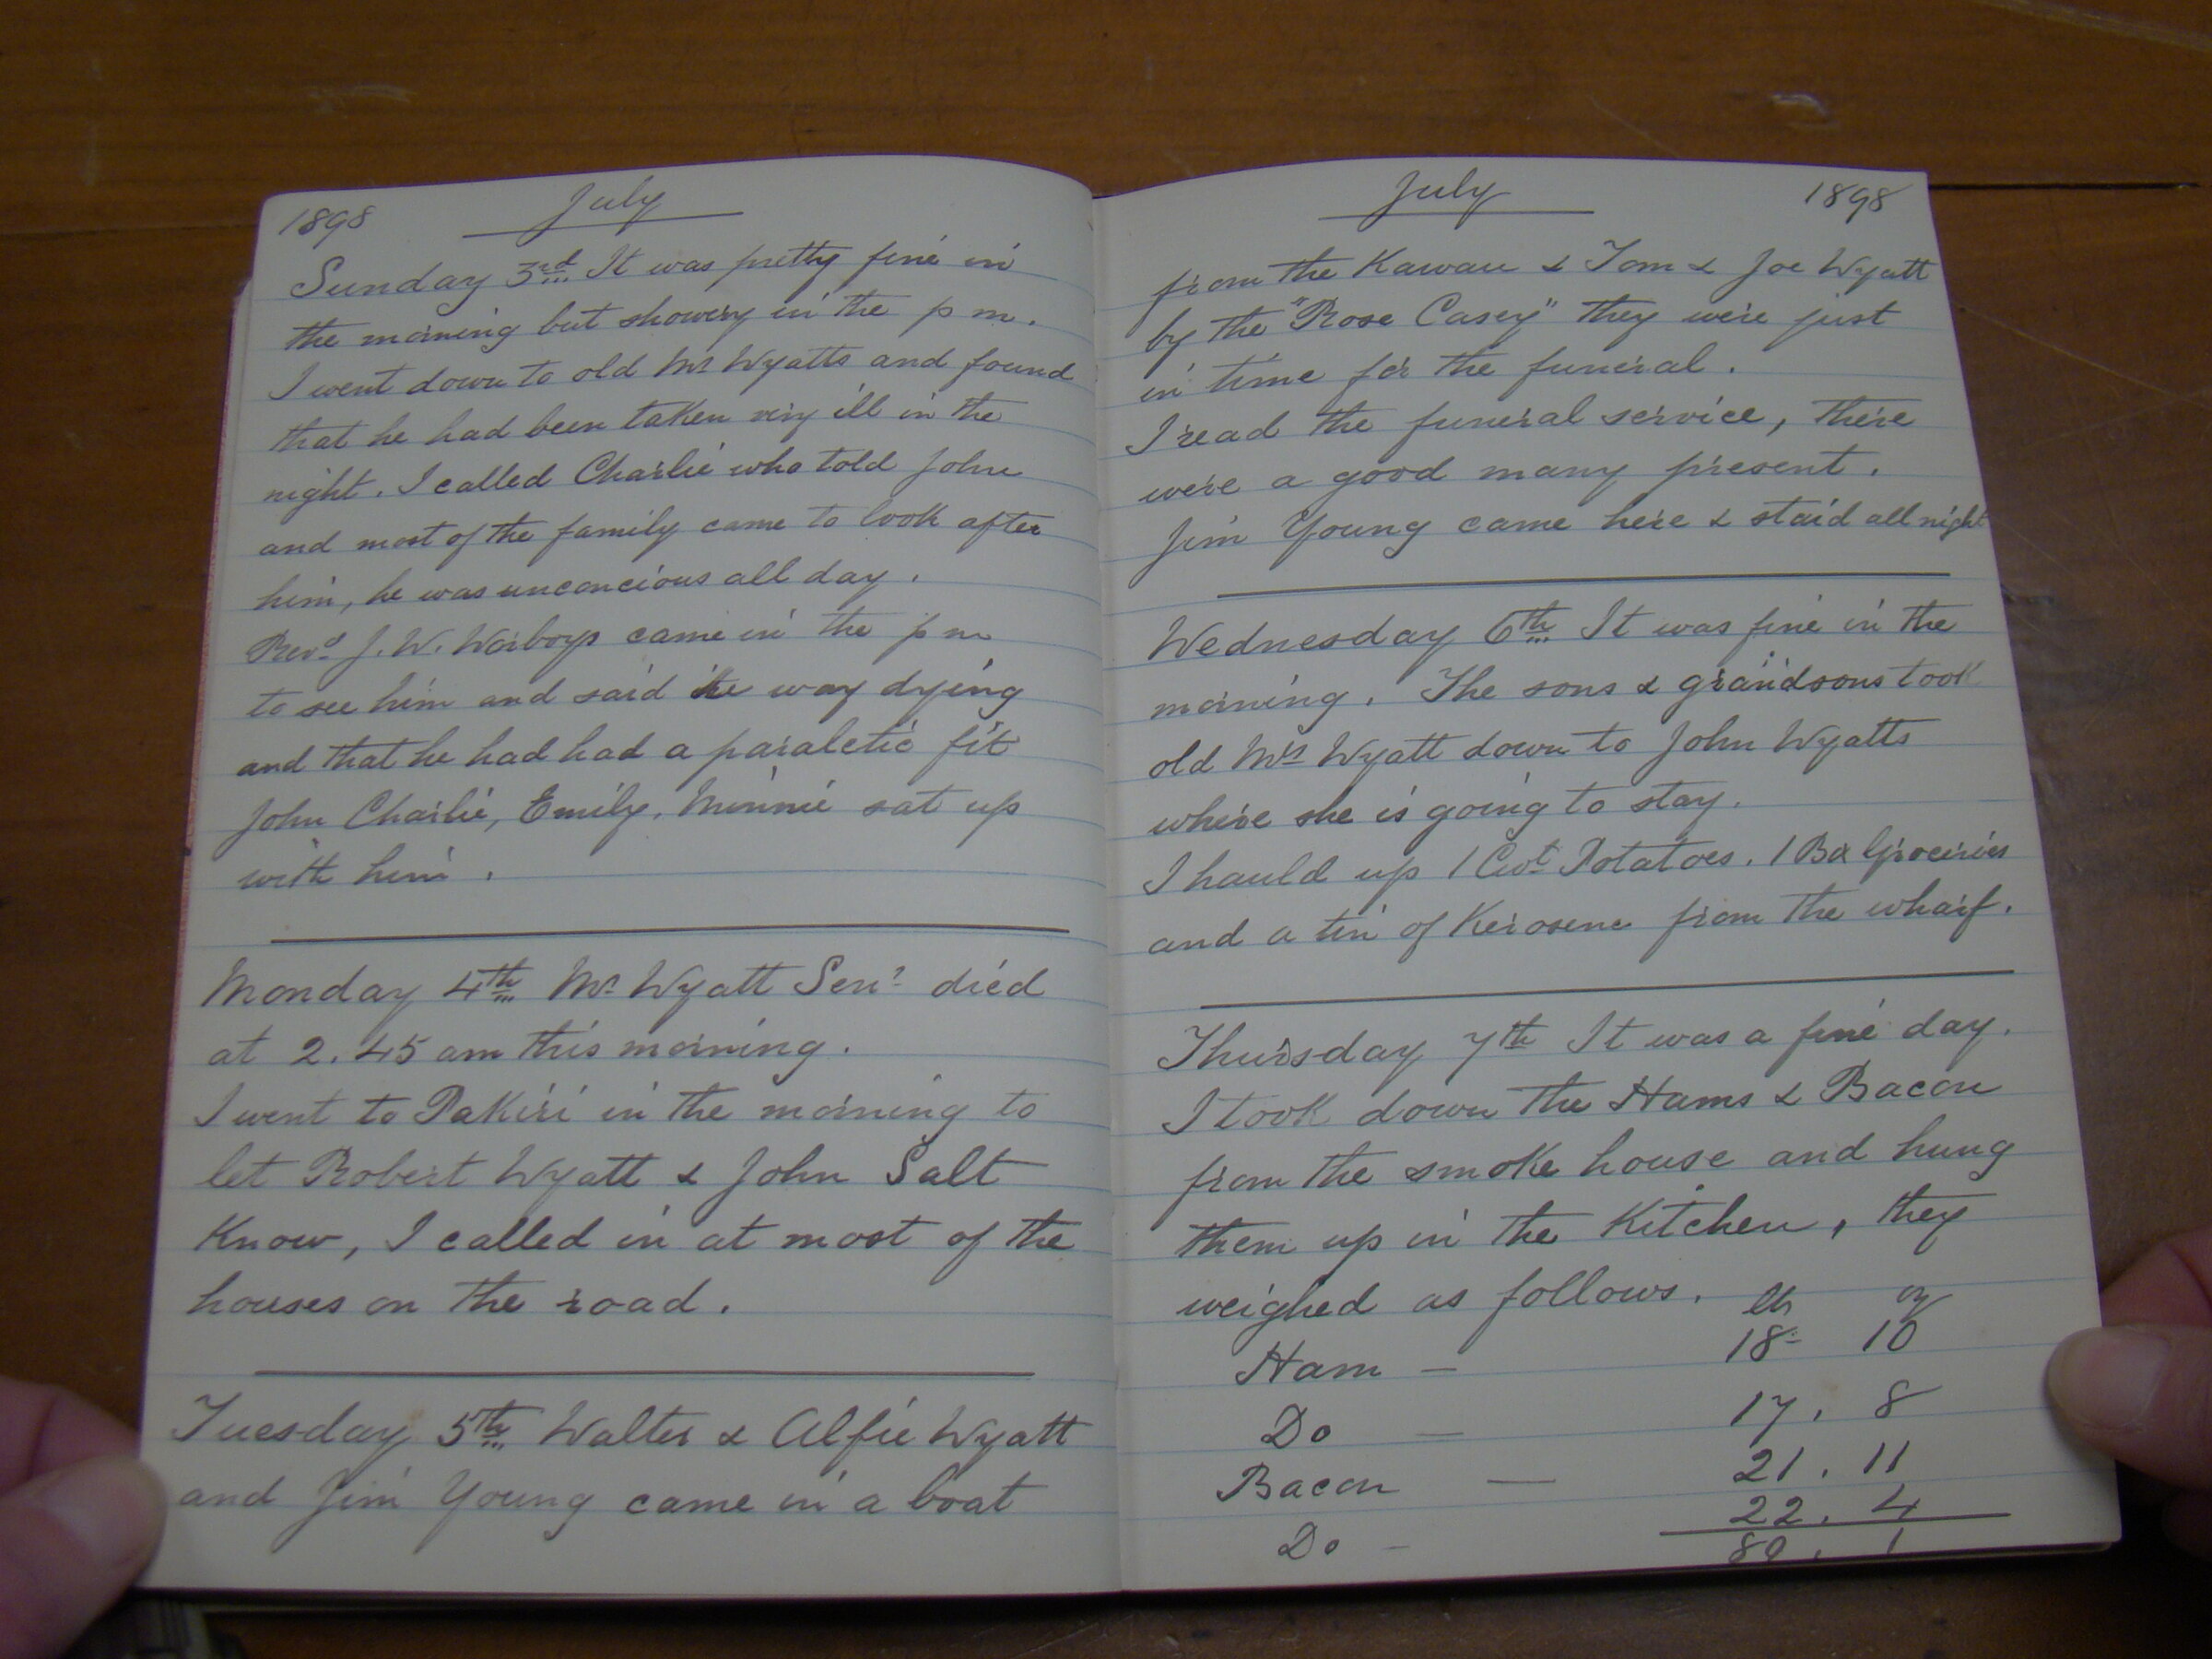 1898 July
Sunday 3rd It was pretty fine in
the morning but showery in the p m.
I went down to old Mr Wyatts and found
that he had been taken very ill in the
night. I called Charlie who told John
and most of the family came to look after
him, he was unconcious all day.
Revd J. W. Worboys came in the p m
to see him and said he way dying
and that he had had a paraletic fit
John Charlie, Emily, Minnie sat up
with him.
Monday 4th Mr Wyatt Senr died
at 2.45 am this morning.
I went to Pakiri in the morning to
let Robert Wyatt & John Salt
Know, I called in at most of the
houses on the road.
Tuesday 5th Walter & Alfie Wyatt
and Jim Young came in a boat
July 1898
from the Kawau & Tom & Joe Wyatt
by the "Rose Casey" they were just
in time for the funeral.
I read the funeral service, there
were a good many present.
Jim Young came here & staid all night
Wednesday 6th It was fine in the
morning. The sons & grandsons took
old Mrs Wyatt down to John Wyatts
where she is going to stay.
I hauld up 1 Cwt Potatoes. 1 Bx Groceries
and a tin of Kerosene from the wharf.
Thursday 7th It was a fine day.
I took down the Hams & Bacon
from the smoke house and hung
them up in the Kitchen, they
weighed as follows. lb oz
Ham — 18- 10
Do — 17. 8
Bacon — 21. 11
Do - 22. 4
80. 1